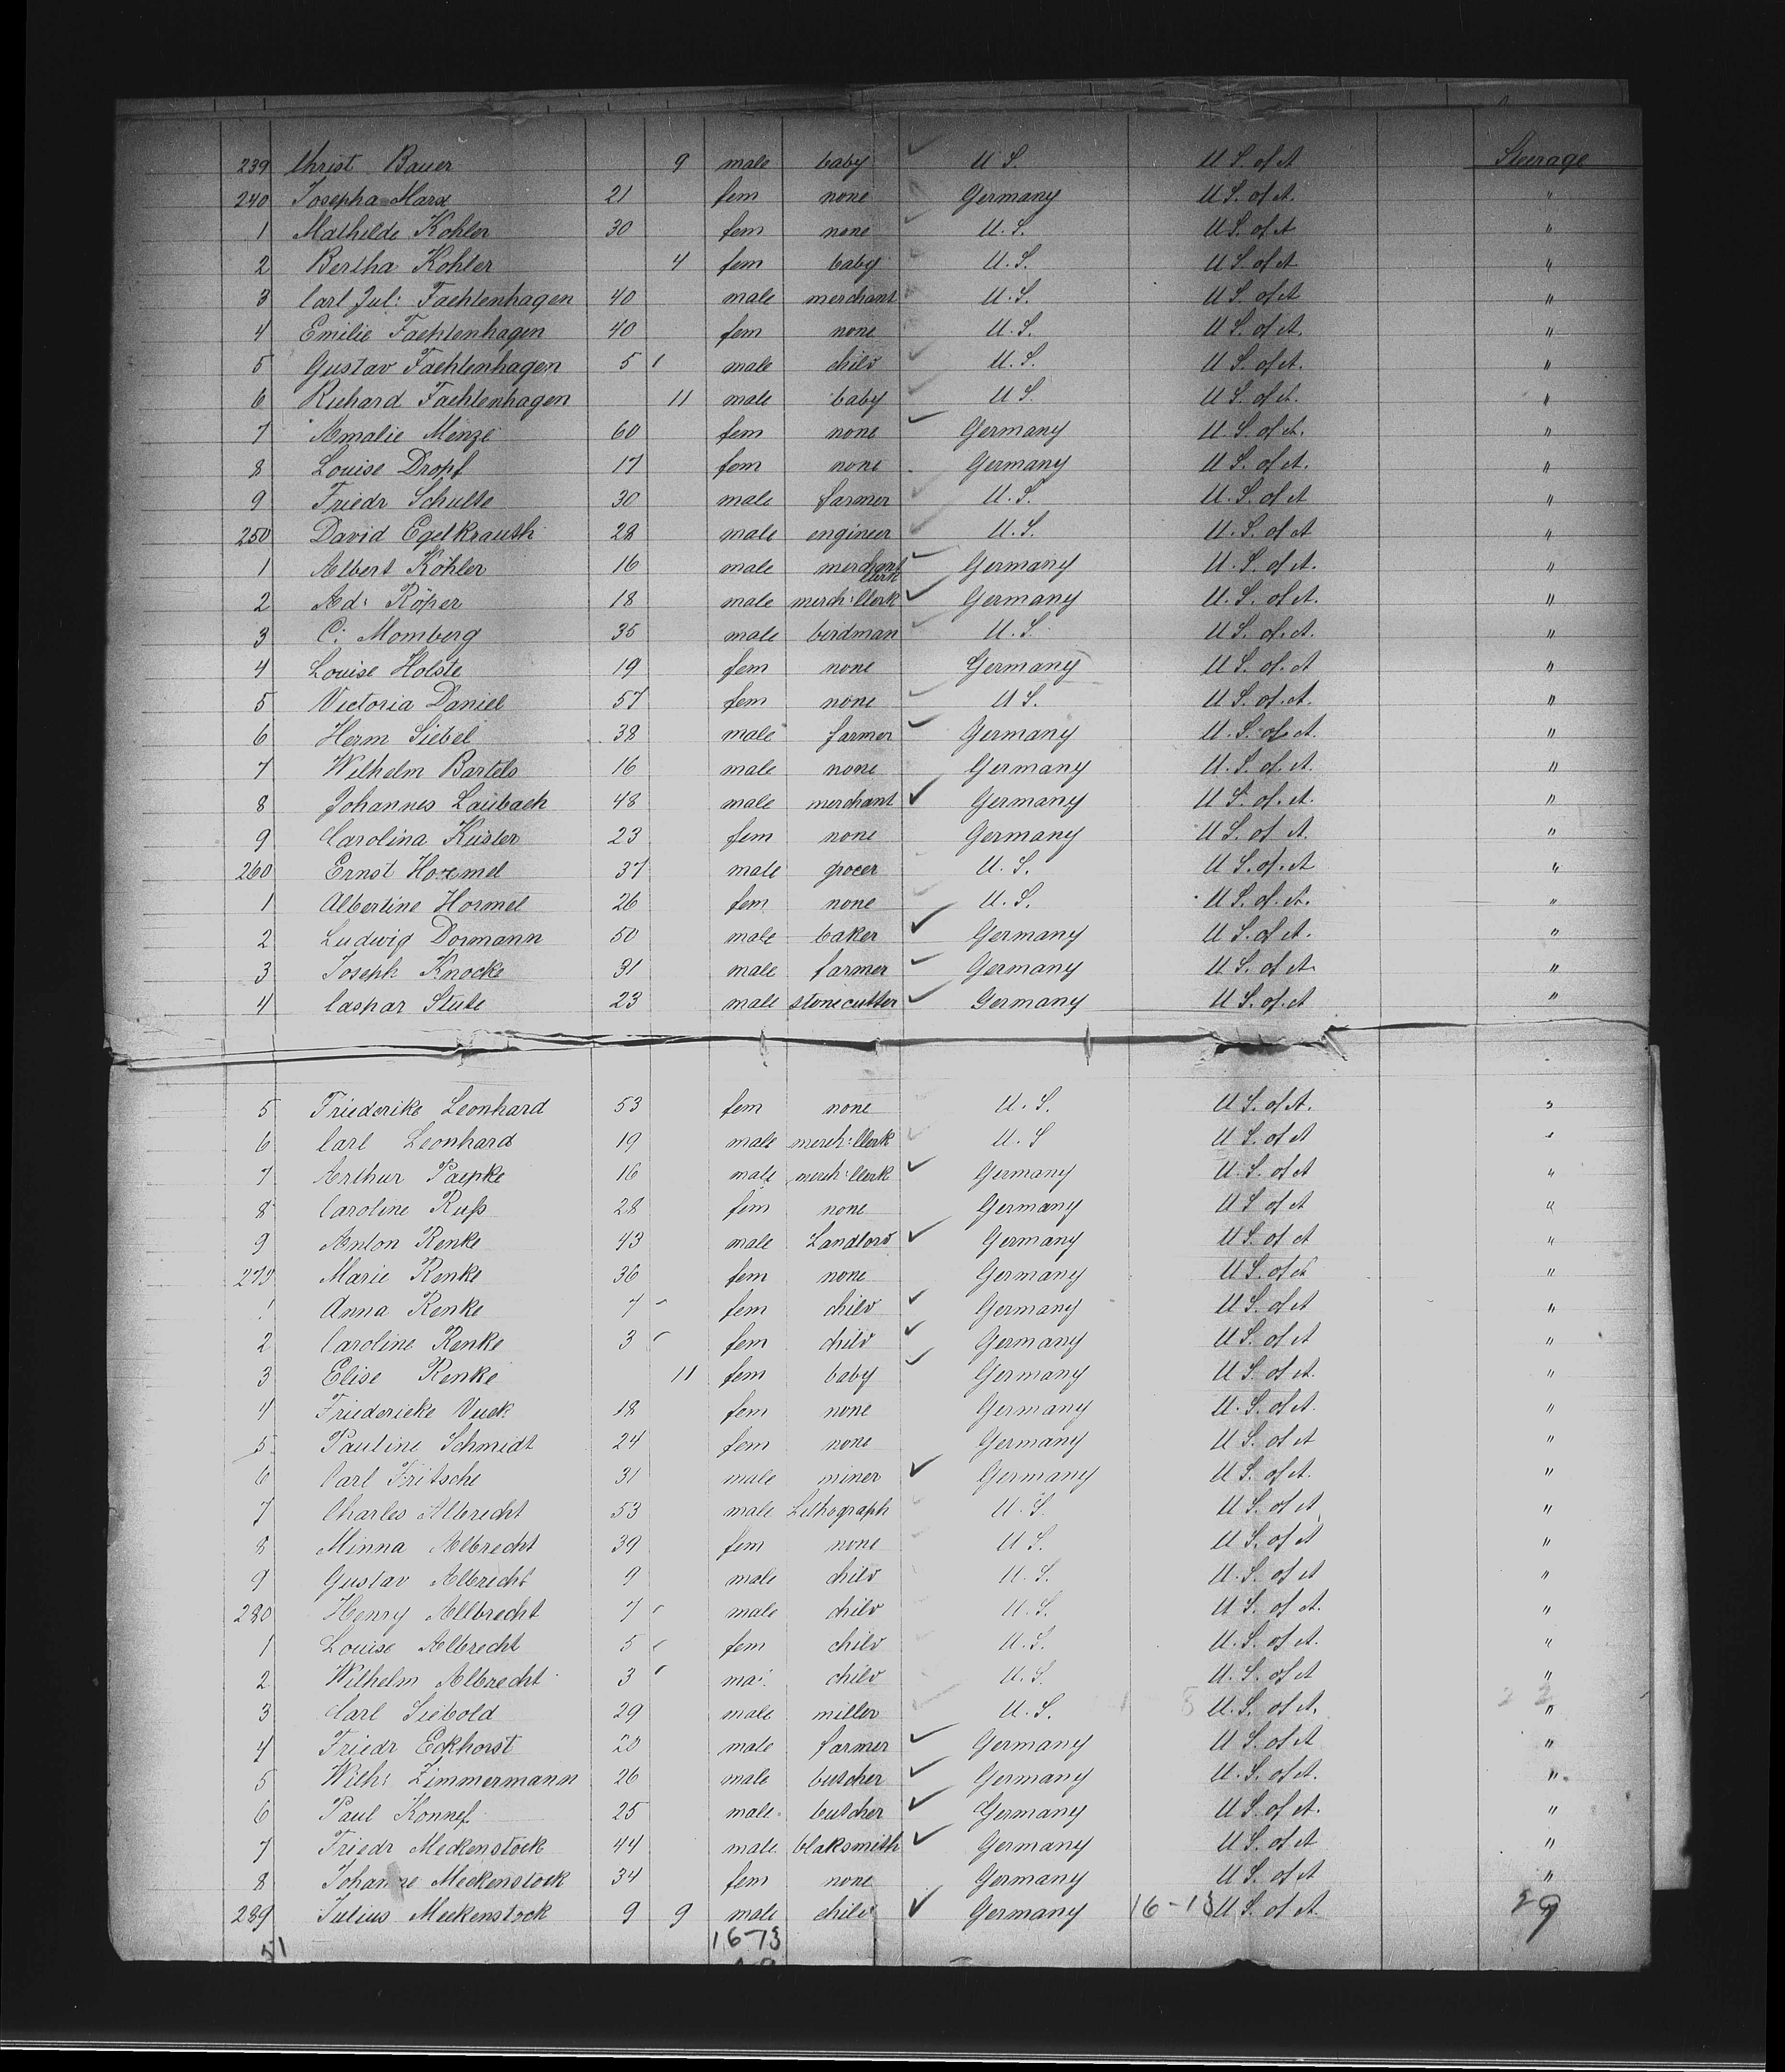 239 Christ Bauer 9 male baby U S. U S. of A Steerage
240 Josepha Marx 21 fem none Germany U S. of A. "
1 Mathilde Kohler 30 fem none U. S. U S. of A "
2 Bertha Kohler 4 fem baby U. S. U S. of A "
3 Carl Jul: Faehtenhagen 40 male merchant U. S. U S. of A "
4 Emilie Faehtenhagen 40 fem none U. S. U S. of A. "
5 Gustav Faehtenhagen 5 male child U. S. U S. of A. "
6 Richard Faehtenhagen 11 male baby U S. U S. of A. "
7 Amalie Menze 60 fem none Germany U. S. of A. "
8 Louise Dropf 17 fem none Germany U S. of A. "
9 Friedr Schulte 30 male farmer U. S. U. S. of A "
250 David Egelkrauth 28 male engineer U. S. U. S. of A "
1 Albert Köhler 16 male merchant clerk Germany U. S. of A. "
2 Ad: Röper 18 male merch: Clerk Germany U. S. of A. "
3 C: Momberg 35 male birdman U. S. U S. of. A. "
4 Louise Holste 19 fem none Germany U S. of. A "
5 Victoria Daniel 57 fem none U S. U S. of. A. "
6 Herm Siebel 38 male farmer Germany U. S. of. A. "
7 Wilhelm Bartels 16 male none Germany U. S. of. A. "
8 Johannes Laubach 48 male merchant Germany U S. of. A. "
9 Carolina Küster 23 fem none Germany U S. of A. "
260 Ernst Hormel 37 male grocer U. S. U S. of. A "
1 Albertine Hormel 26 fem none U. S. U S. of. A. "
2 Ludwig Dormann 50 male baker Germany U S. of A. "
3 Joseph Knocke 31 male farmer Germany U S. of A. "
4 Caspar Stute 23 male stonecutter Germany U S. of. A "
5 Friederike Leonhard 53 fem none U. S. U S. of A. "
6 Carl Leonhard 19 male merch: Clerk U. S U S. of A "
7 Arthur Paepke 16 male merch: Clerk Germany U. S. of A "
8 Caroline Ruß 28 fem none Germany U S of A "
9 Anton Renke 43 male Landlord Germany U S. of A "
270 Marie Renke 36 fem none Germany U S. of A "
1 Anna Renke 7 fem child Germany U S. of A "
2 Caroline Renke 3 fem child Germany U S. of A "
3 Elise Renke 11 fem baby Germany U S. of A. "
4 Friederieke Vuek 18 fem none Germany U. S. of A. "
5 Pauline Schmidt 24 fem none Germany U S. of A "
6 Carl Fritsche 31 male miner Germany U S. of A. "
7 Charles Albrecht 53 male Lithograph U. S. U S. of A "
8 Minna Albrecht 39 fem none U S. U S. of A "
9 Gustav Albrecht 9 male child U. S. U. S. of A "
280 Henry Albrecht 7 male child U. S. U S. of A. "
1 Louise Albrecht 5 fem child U. S. U. S. of A. "
2 Wilhelm Albrecht 3 mal child U. S. U. S. of A "
3 Carl Siebold 29 male miller U. S. U. S. of A. "
4 Friedr Eckhorst 20 male farmer Germany U S. of A "
5 Wilh: Zimmermann 26 male butcher Germany U. S. of A. "
6 Paul Konnef 25 male butcher Germany U S. of A. "
7 Friedr Meckenstock 44 male blaksmith Germany U S. of A "
8 Johanne Meckenstock 34 fem none Germany U S. of A "
289 Julius Meckenstock 9 9 male child Germany 16-13 U S. of A. 29
51 16-13